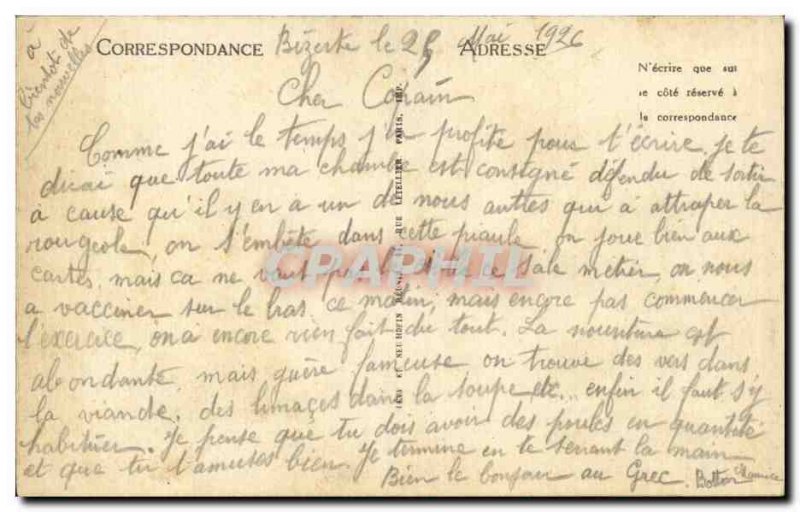 à
bientôt de
tes nouvelles
CORRESPONDANCE Bizerte le 25 Mai 1926
ADRESSE
N'écrire que sur
le côté réservé à
la correspondance
Cher Copain
Comme j'ai le temps j'en profite pour t'écrire, je te
dirai que toute ma chambre est consigné défendu de sortir
à cause qu'il y en a un de nous autres qui a attraper la
rougeole, on s'embête dans cette piaule on joue bien aux
cartes, mais ca ne vaut pas ce sale métier, on nous
a vacciner sur le bras ce matin, mais encore pas commencer
l'exercice, on a encore rien fait du tout. La nourriture est
abondante mais guère fameuse on trouve des vers dans
la viande, des limaces dans la soupe etc... enfin il faut s'y
habituer. Je pense que tu dois avoir des poules en quantité
et que tu t'amuses bien. Je termine en te serrant la main
Bien le bonjour au Grec. Maurice
LEVY ET NEURDEIN RÉUNIS, RUE LETELLIER PARIS, IMP.
CPAPHIL